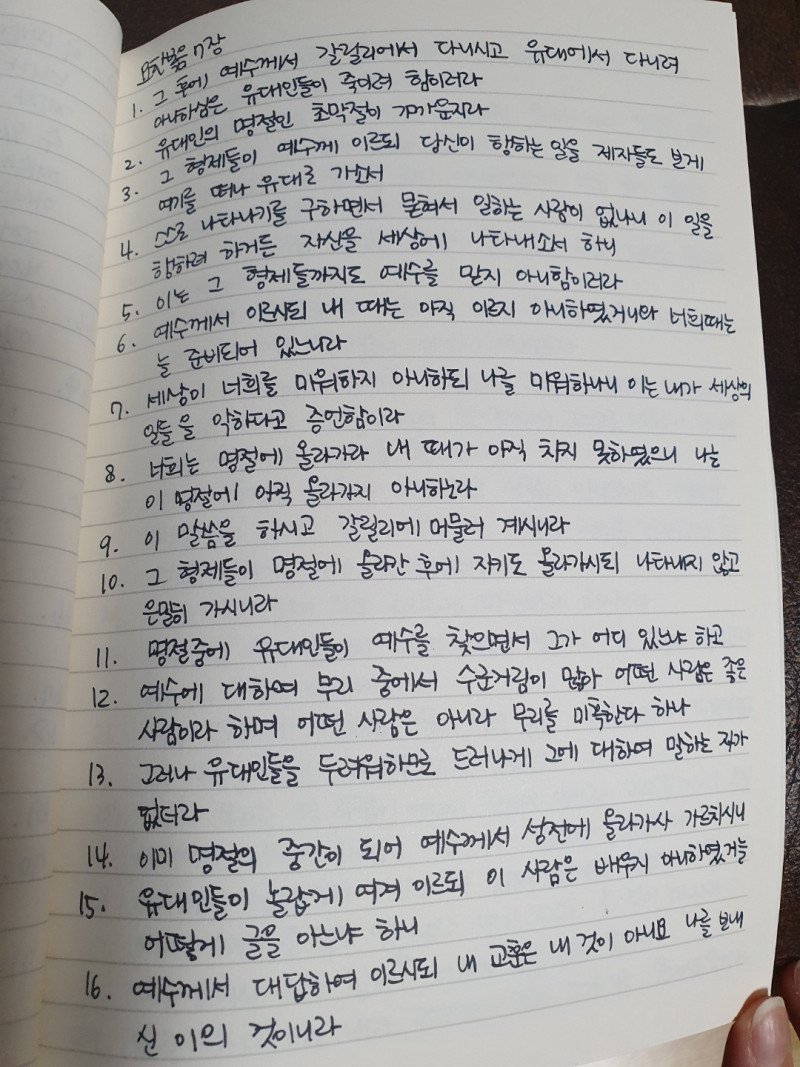 요한복음 7장
1. 그 후에 예수께서 갈릴리에서 다니시고 유대에서 다니려
아니하심은 유대인들이 죽이려 함이러라
2. 유대인의 명절인 초막절이 가까운지라
3. 그 형제들이 예수께 이르되 당신이 행하는 일을 제자들도 보게
여기를 떠나 유대로 가소서
4. 스스로 나타나기를 구하면서 묻혀서 일하는 사람이 없나니 이 일을
행하려 하거든 자신을 세상에 나타내소서 하니
5. 이는 그 형제들까지도 예수를 믿지 아니함이러라
6. 예수께서 이르시되 내 때는 아직 이르지 아니하였거니와 너희때는
늘 준비되어 있느니라
7. 세상이 너희를 미워하지 아니하되 나를 미워하나니 이는 내가 세상의
일들을 악하다고 증언함이라
8. 너희는 명절에 올라가라 내 때가 아직 차지 못하였으니 나는
이 명절에 아직 올라가지 아니하노라
9. 이 말씀을 하시고 갈릴리에 머물러 계시니라
10. 그 형제들이 명절에 올라간 후에 자기도 올라가시되 나타내지 않고
은밀히 가시니라
11. 명절중에 유대인들이 예수를 찾으면서 그가 어디 있느냐 하고
12. 예수에 대하여 무리 중에서 수군거림이 많아 어떤 사람은 좋은
사람이라 하며 어떤 사람은 아니라 무리를 미혹한다 하나
13. 그러나 유대인들을 두려워하므로 드러나게 그에 대하여 말하는 자가
없더라
14. 이미 명절의 중간이 되어 예수께서 성전에 올라가사 가르치시니
15. 유대인들이 놀랍게 여겨 이르되 이 사람은 배우지 아니하였거늘
어떻게 글을 아느냐 하니
16. 예수께서 대답하여 이르시되 내 교훈은 내 것이 아니요 나를 보내
신 이의 것이니라